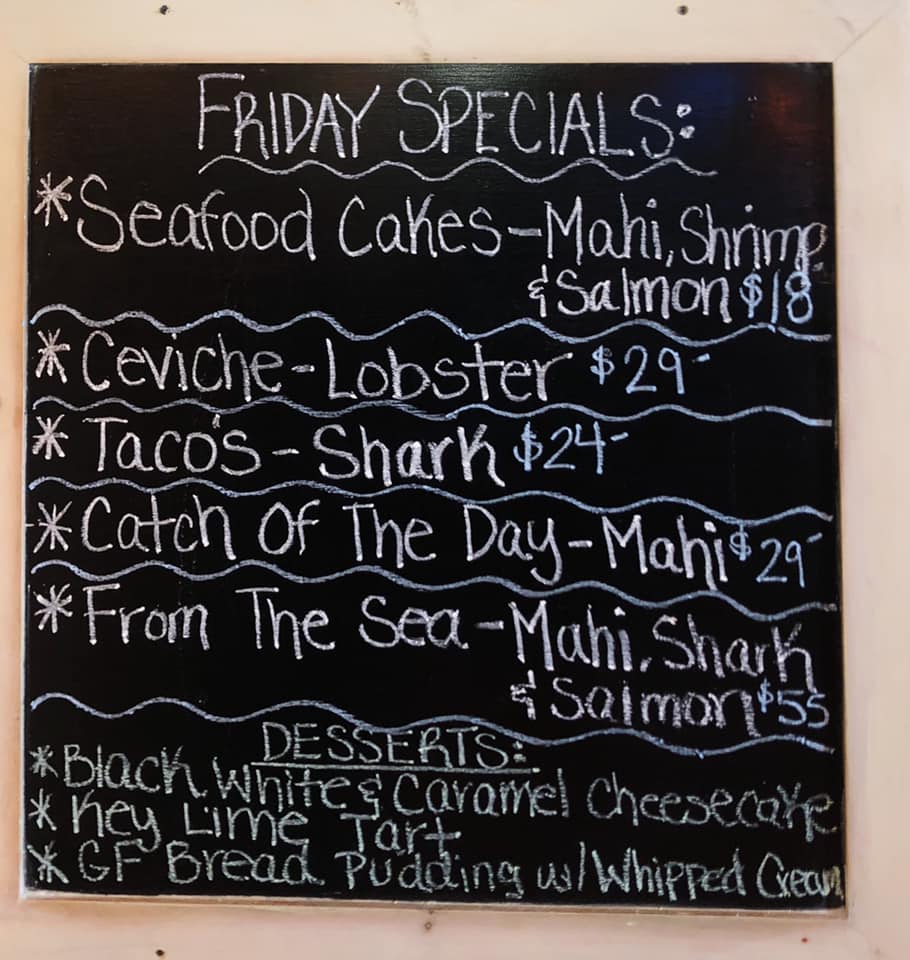 FRIDAY SPECIALS:
*Seafood Cakes-Mahi, Shrimp
& Salmon $18
*Ceviche-Lobster $29-
*Taco's-Shark $24-
*Catch Of The Day-Mahi $29-
*From The Sea-Mahi, Shark
& Salmon $55
DESSERTS:
*Black, White & Caramel Cheesecake
*Key Lime Tart
*GF Bread Pudding w/Whipped Cream